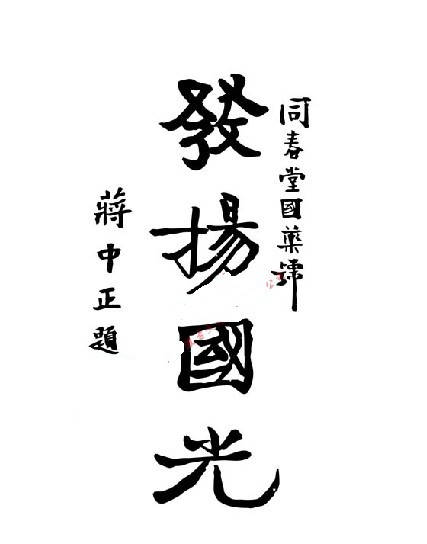 同春堂國藥號
發揚國光
蔣中正題